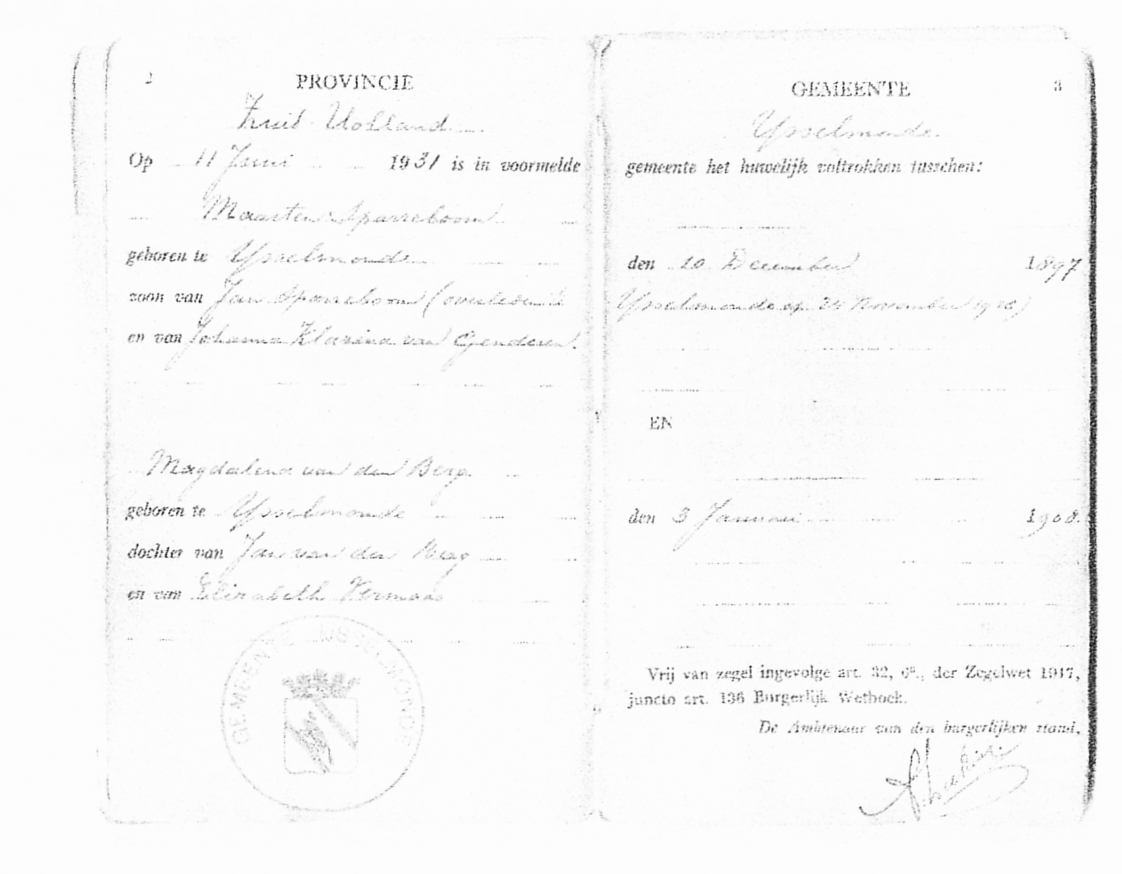 2
PROVINCIE
Zuid Holland
Op 11 Juni 1931 is in voormelde
Maarten Sparreboom
geboren te Ysselmonde
zoon van Jan Sparreboom (overleden te
en van Johanna Klazina van Genderen.
Magdalena van den Berg
geboren te Ysselmonde
dochter van Jan van den Berg
en van Elizabeth Vermaas
GEMEENTE IJSSELMONDE
GEMEENTE
3
Ysselmonde
gemeente het huwelijk voltrokken tusschen:
den 10 December 1897
Ysselmonde op 24 November
EN
den 3 Januari 1908.
Vrij van zegel ingevolge art. 32, 6°., der Zegelwet 1917,
juncto art. 136 Burgerlijk Wetboek.
De Ambtenaar van den burgerlijken stand,